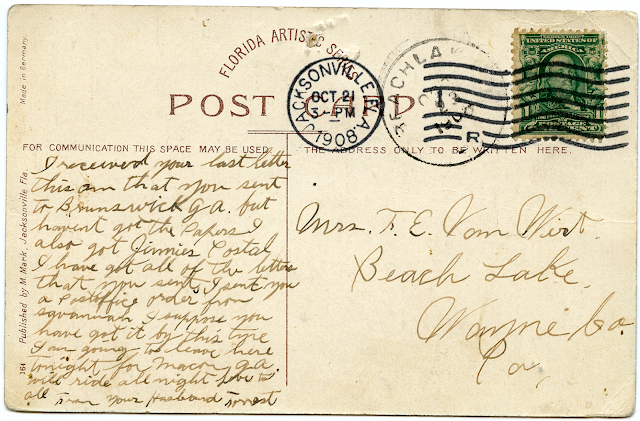 FLORIDA ARTISTIC SERIES
Made in Germany.
POST CARD
JACKSONVILLE, FLA.
OCT 21
3-PM
1908
BEACH LAKE
R
SERIES 1902
UNITED STATES OF
POSTAGE
FOR COMMUNICATION THIS SPACE MAY BE USED
THE ADDRESS ONLY TO BE WRITTEN HERE.
I received your last letter
this am that you sent
to Brunswick ga. but
havent got the Papers I
also got Jinnies Postal
I have got all of the letters
that you sent, I sent you
a Postoffice order from
savannah I suppose you
have got it by this time
I am going to leave here
tonight for Macon ga.
will ride all night love to
all from your Husband Forrest
Mrs. F. E. Van Wirt.
Beach Lake.
Wayne Co.
Pa,
Published by M. Mark, Jacksonville Fla.
164